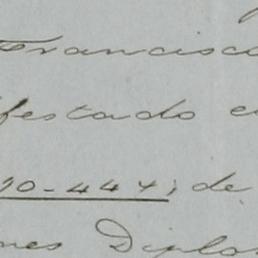 Francisco
festado e
90-444; de
nes Diplo